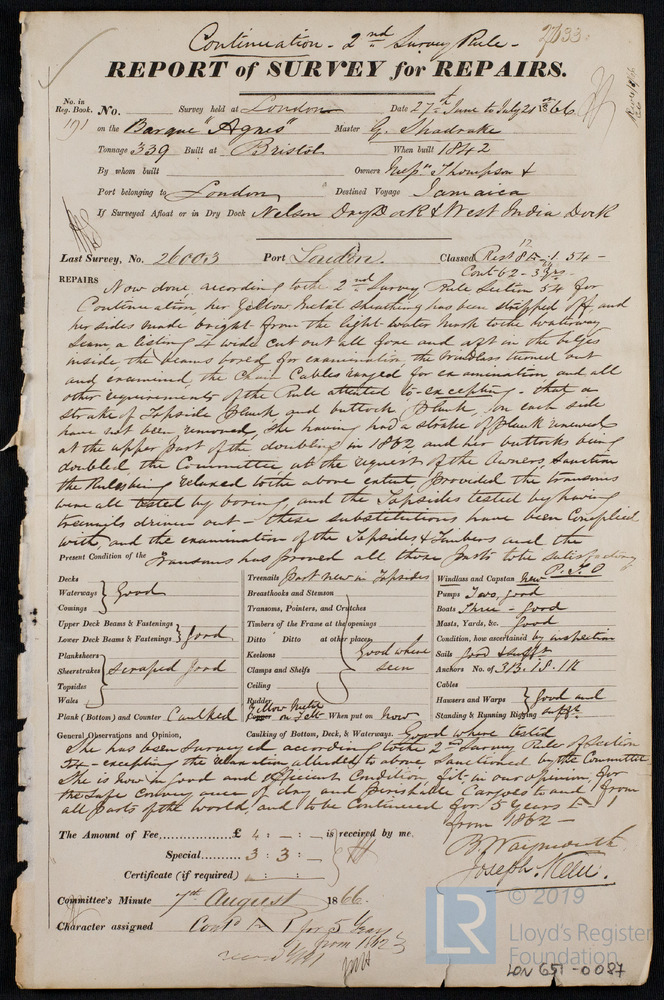 Continuation - 2nd Survey Rule -
REPORT of SURVEY for REPAIRS.
No. in Reg. Book. No. Survey held at London Date 27th June to July 21st 1866
191 on the Barque "Agnes" Master G. Shadrake
Tonnage 339 Built at Bristol When built 1842
By whom built Owners Thompson &
Port belonging to London Destined Voyage Jamaica
If Surveyed Afloat or in Dry Dock Nelson Dry Dock & West India Dock
Last Survey, No. 26003 Port London. Classed
Cont 62 - 5 yrs
REPAIRS Now done, according to the 2nd Survey Rule Section 54 for
Continuation, her Yellow Metal sheathing has been stripped off, and
her sides made bright from the light water mark to the waterway
seam, a listing 4 wide cut out all fore and aft in the bilges
inside, the beams bored for examination the windlass turned out
and examined, the Chain Cables ranged for examination and all
other requirements of the Rule attended to - excepting - that a
strake of Topside plank and buttock plank, on each side
have not been removed, she having had a strake of plank renewed
at the upper part of the doubling in 1862 and her buttocks being
doubled, the Committee, at the request of the Owners, Sanction
the Rules being relaxed to the above extent, provided the transoms
were all tested by boring, and the Topsides tested by having
treenails driven out - these substitutions have been complied
with, and the examination of the Topsides & Timbers and the
Present Condition of the Transoms has proved all these parts to be satisfactory
P. T. O
Decks
Waterways } Good
Comings
Upper Deck Beams & Fastenings
Lower Deck Beams & Fastenings } Good
Planksheers
Sheerstrakes } Scraped Good
Topsides
Wales
Plank (Bottom) and Counter Caulked
Treenails Part new in Topsides
Breasthooks and Stemson
Transoms, Pointers, and Crutches
Timbers of the Frame at the openings
Ditto Ditto at other places
Keelsons Good where
Clamps and Shelfs seen
Ceiling
Rudder
Yellow Metal
Copper on Felt When put on Now
Caulking of Bottom, Deck, & Waterways. Good where tested
Windlass and Capstan New
Pumps Two, good
Boats Three - Good
Masts, Yards, &c. Good
Condition, how ascertained by inspection
Sails Good & sufft
Anchors No. of 3/3. 1S. 1K
Cables
Hawsers and Warps } Good and
Standing & Running Rigging } sufft
General Observations and Opinion,
She has been Surveyed according to the 2nd Survey Rule of Section
54 - excepting the relaxation alluded to above Sanctioned by the Committee
She is now in good and efficient Condition, fit in our opinion, for
the safe conveyance of dry and perishable Cargoes to and from
all parts of the world, and to be Continued for 5 years
from 1862 -
The Amount of Fee............£ 4 : - : - is received by me,
Special............ 3 : 3 : -
Certificate (if required) - : - : -
B. Waymouth
Joseph
Committee's Minute 7th August 1866.
Character assigned Contd A 1 for 5 Years
from 1862
© 2019
LR
Lloyd's Register
Foundation
LON 651 - 0087